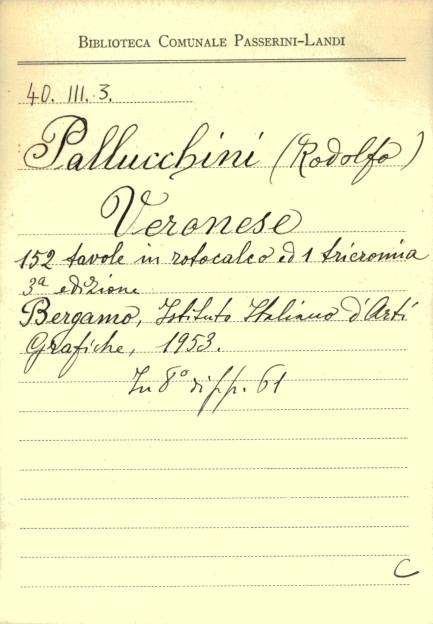 BIBLIOTECA COMUNALE PASSERINI-LANDI
40. III. 3.
Pallucchini (Rodolfo)
Veronese
152 tavole in rotocalco ed 1 tricromia
3ª edizione
Bergamo, Istituto Italiano d'Arti
Grafiche, 1953.
In 8° di pp. 61
C